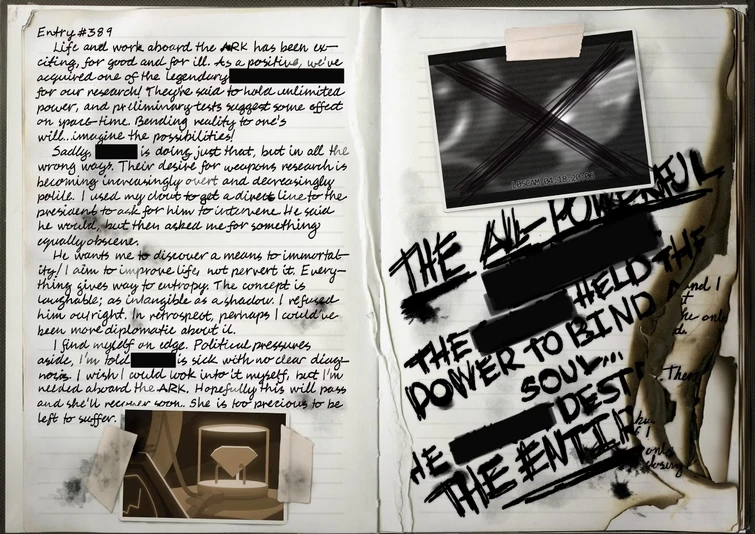 Entry #389
Life and work aboard the ARK has been ex-
citing, for good and for ill. As a positive, we've
acquired one of the legendary
for our research! They're said to hold unlimited
power, and preliminary tests suggest some effect
on space-time. Bending reality to one's
will...imagine the possibilities!
Sadly, is doing just that, but in all the
wrong ways. Their desire for weapons research is
becoming increasingly overt and decreasingly
polite. I used my clout to get a direct line to the
president to ask for him to intervene. He said
he would, but then asked me for something
equally obscene.
He wants me to discover a means to immortal-
ity! I aim to improve life, not pervert it. Every-
thing gives way to entropy. The concept is
laughable; as intangible as a shadow. I refused
him outright. In retrospect, perhaps I could've
been more diplomatic about it.
I find myself on edge. Political pressures
aside, I'm told is sick with no clear diag-
nosis. I wish I could look into it myself, but I'm
needed aboard the ARK. Hopefully this will pass
and she'll recover soon. She is too precious to be
left to suffer.
THE ALL-POWERFUL
THE HELD THE
POWER TO BIND
SOUL...
HE DEST
THE ENTIR
and I
the only
Then
only